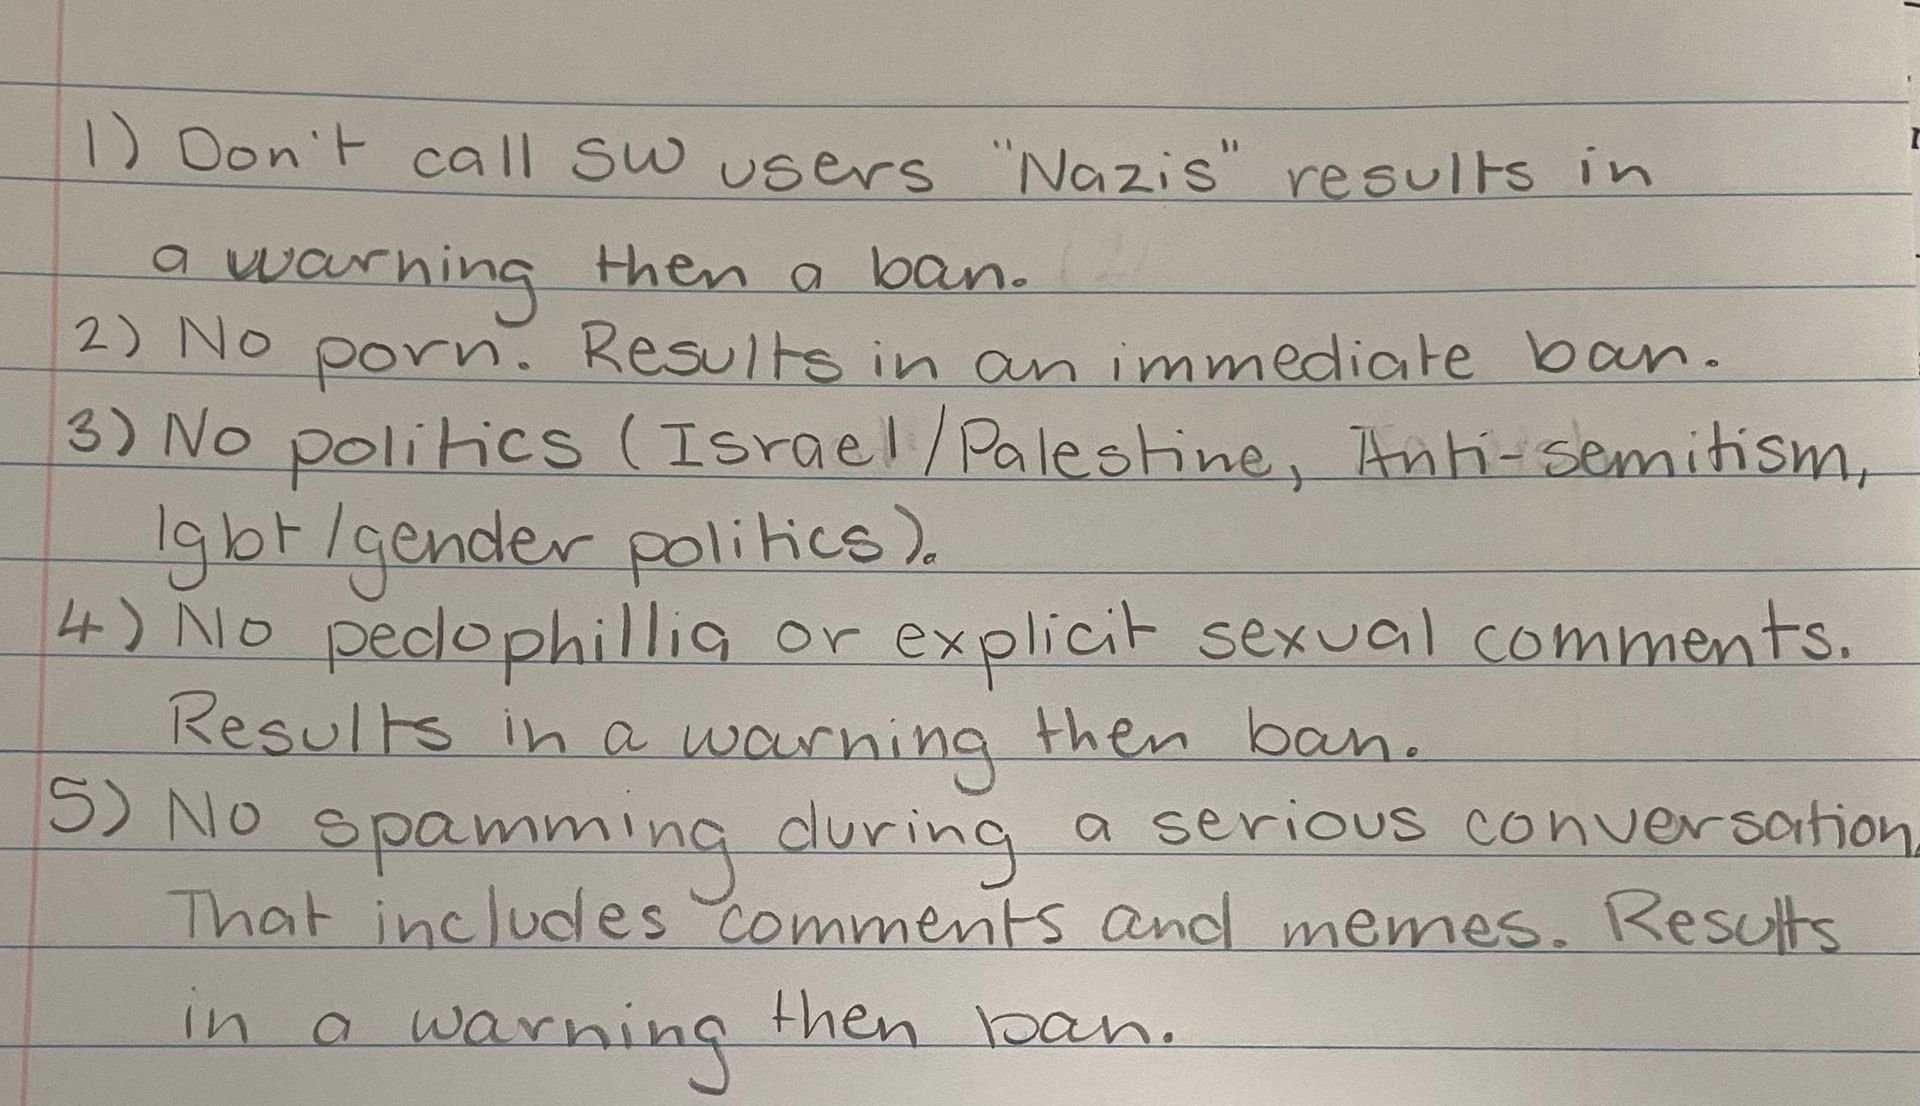 1) Don't call SW users "Nazis" results in
a warning then a ban.
2) No porn. Results in an immediate ban.
3) No politics (Israel/Palestine, Anti-semitism,
lgbt/gender politics).
4) No pedophillia or explicit sexual comments.
Results in a warning then ban.
5) No spamming during a serious conversation.
That includes comments and memes. Results
in a warning then ban.